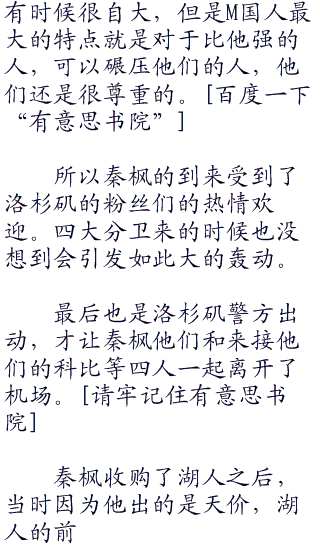 有时候很自大，但是M国人最
大的特点就是对于比他强的
人，可以碾压他们的人，他
们还是很尊重的。[百度一下
“有意思书院”]
所以秦枫的到来受到了
洛杉矶的粉丝们的热情欢
迎。四大分卫来的时候也没
想到会引发如此大的轰动。
最后也是洛杉矶警方出
动，才让秦枫他们和来接他
们的科比等四人一起离开了
机场。[请牢记住有意思书
院]
秦枫收购了湖人之后，
当时因为他出的是天价，湖
人的前